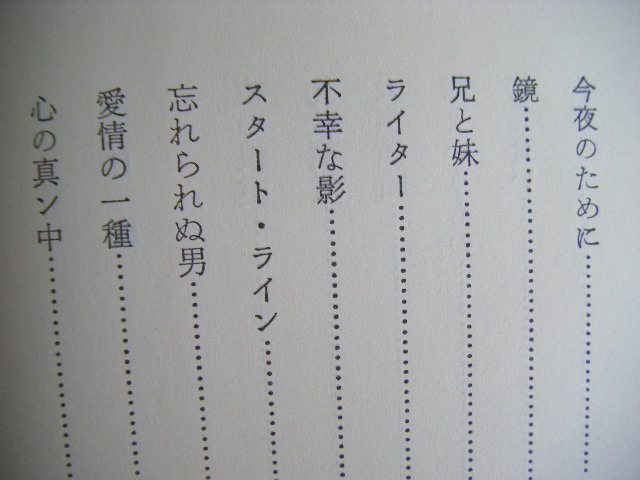 今夜のために
鏡
兄と妹
ライター
不幸な影
スタート・ライン
忘れられぬ男
愛情の一種
心の真ン中